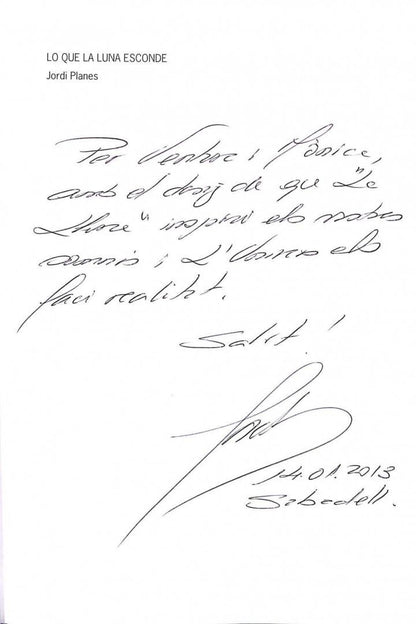 LO QUE LA LUNA ESCONDE
Jordi Planes
Per i Mònica,
amb el desig de que "La
Lluna" inspiri els vostres
somnis i L'Univers els
faci realitat.
Salut!
Jordi
14.01.2013
Sabadell.